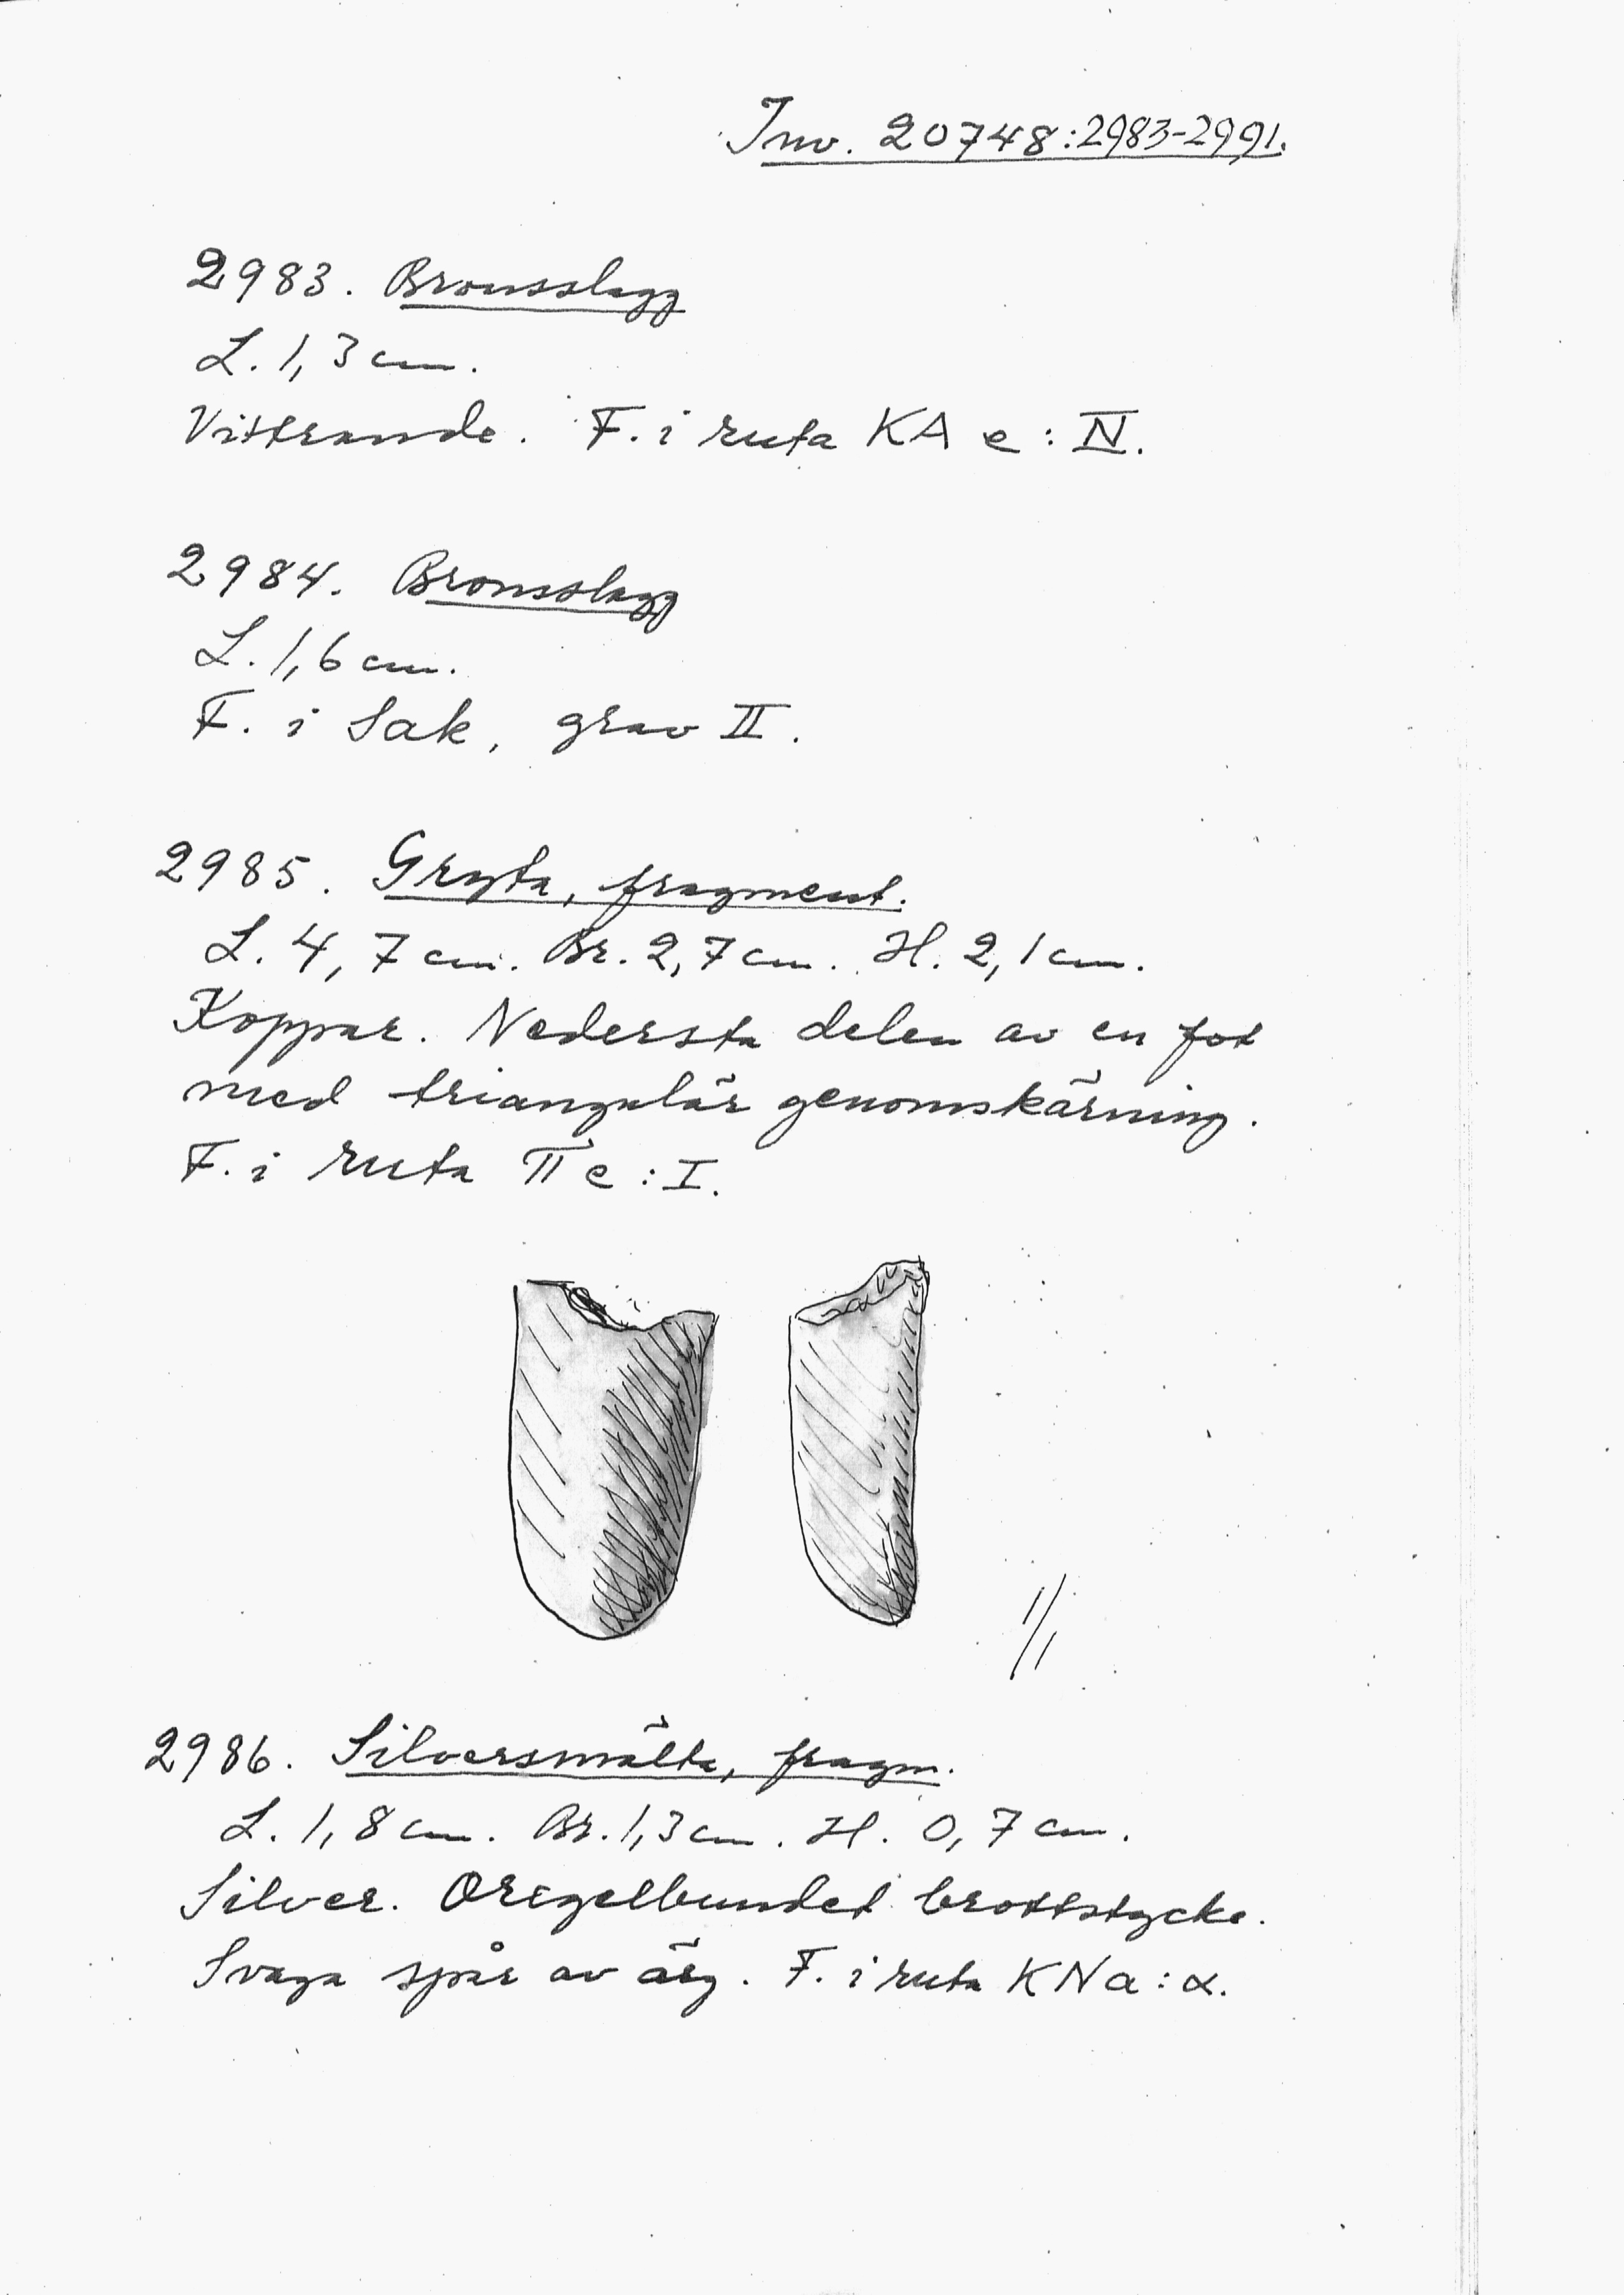 Inv. 20748:2983-2991.
2983. Bronsslagg
L. 1,3 cm.
Vittrande. F. i ruta KA e : IV.
2984. Bronsslagg
L. 1,6 cm.
F. i Sak, grav II.
2985. Gryta, fragment.
L. 4,7 cm. Br. 2,7 cm. H. 2,1 cm.
Koppar. Nedersta delen av en fot
med triangulär genomskärning.
F. i ruta TT e : I.
1/1
2986. Silversmälta, fragm.
L. 1,8 cm. Br. 1,3 cm. H. 0,7 cm.
Silver. Oregelbundet brottstycke.
Svaga spår av ärg. F. i ruta KNa : α.